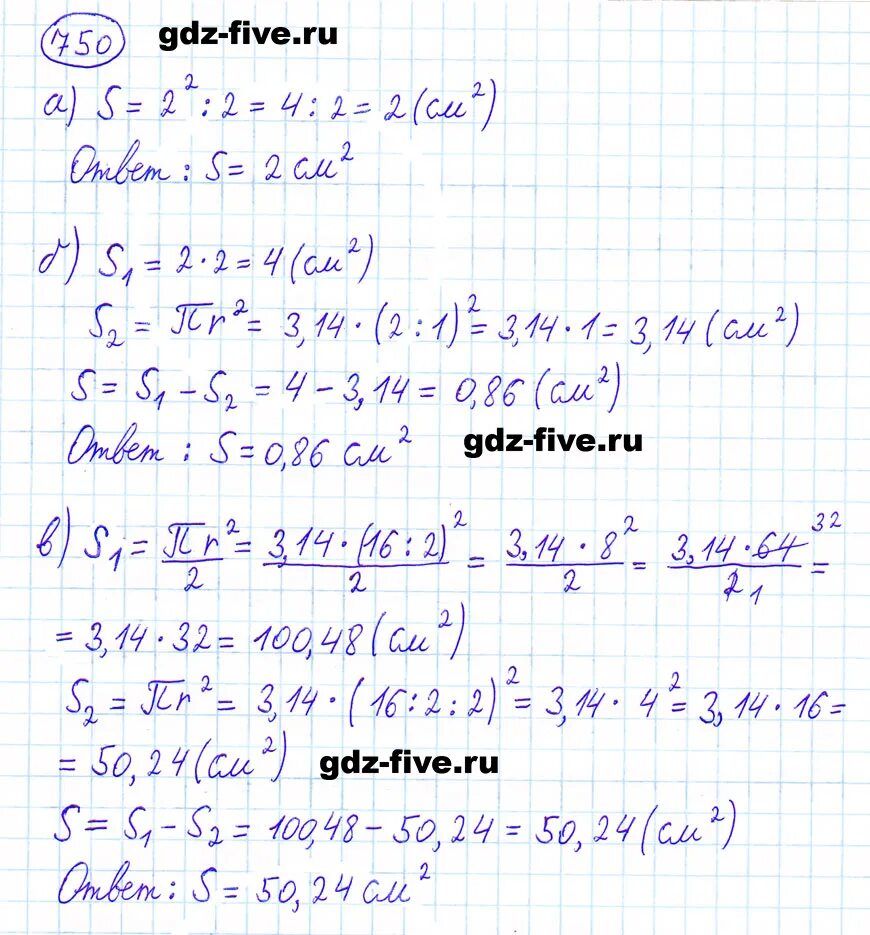 750 gdz-five.ru
а) S = 2² : 2 = 4 : 2 = 2 (см²)
Ответ : S = 2 см²
б) S₁ = 2 · 2 = 4 (см²)
S₂ = πr² = 3,14 · (2 : 1)² = 3,14 · 1 = 3,14 (см²)
S = S₁ - S₂ = 4 - 3,14 = 0,86 (см²)
Ответ : S = 0,86 см² gdz-five.ru
в) S₁ = πr²/2 = 3,14 · (16 : 2)²/2 = 3,14 · 8²/2 = 3,14 · 64 32/2 1 =
= 3,14 · 32 = 100,48 (см²)
S₂ = πr² = 3,14 · (16 : 2 : 2)² = 3,14 · 4² = 3,14 · 16 =
= 50,24 (см²) gdz-five.ru
S = S₁ - S₂ = 100,48 - 50,24 = 50,24 (см²)
Ответ : S = 50,24 см²